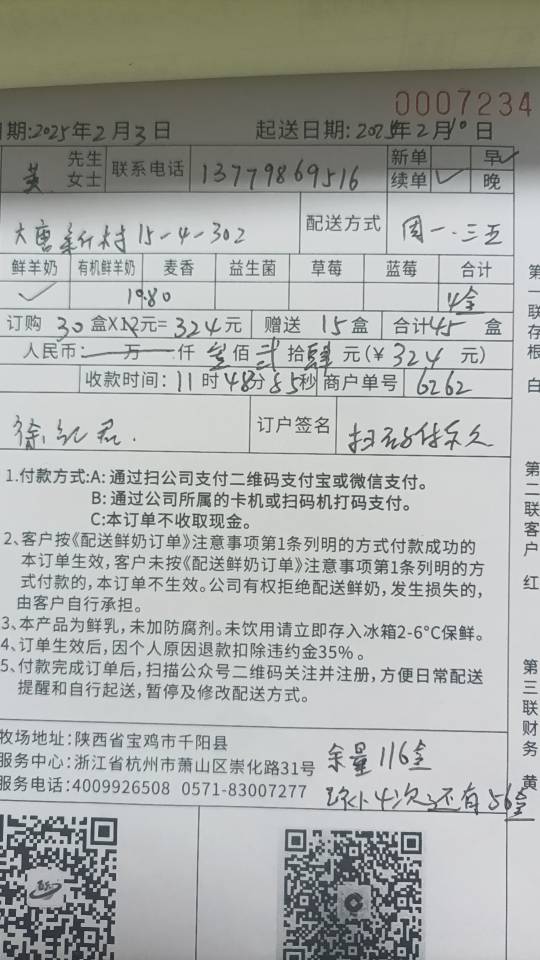 0007234
日期:2025年2月3日 起送日期:2025年2月10日
黄 先生 女士 联系电话 13779869516 新单 早✓
续单 ✓ 晚
大唐新村15-4-302 配送方式 周一.三五
鲜羊奶 有机鲜羊奶 麦香 益生菌 草莓 蓝莓 合计
✓ 19.80
订购30盒X12元=324元 赠送15盒 合计45盒
人民币: 万 仟 叁佰贰拾肆元(¥324元)
收款时间:11时48分 秒 商户单号 6262
订户签名
1.付款方式:A: 通过扫公司支付二维码支付宝或微信支付。
B: 通过公司所属的卡机或扫码机打码支付。
C:本订单不收取现金。
2、客户按《配送鲜奶订单》注意事项第1条列明的方式付款成功的
本订单生效，客户未按《配送鲜奶订单》注意事项第1条列明的方
式付款的，本订单不生效。公司有权拒绝配送鲜奶，发生损失的，
由客户自行承担。
3、本产品为鲜乳，未加防腐剂。未饮用请立即存入冰箱2-6°C保鲜。
4、订单生效后，因个人原因退款扣除违约金35%。
5、付款完成订单后，扫描公众号二维码关注并注册，方便日常配送
提醒和自行起送，暂停及修改配送方式。
牧场地址:陕西省宝鸡市千阳县
服务中心:浙江省杭州市萧山区崇化路31号
服务电话:4009926508 0571-83007277
余量116盒
4次 还有56盒
第一联存根 白
第二联客户 红
第三联财务 黄